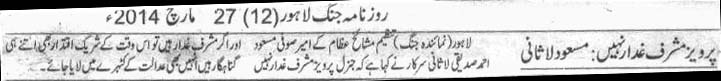 روزنامہ جنگ لاہور (12) 27 مارچ 2014ء
پرویز مشرف غدار نہیں: مسعود لاثانی
لاہور (نمائندہ جنگ) تنظیم مشائخ عظام کے امیر صوفی مسعود
احمد صدیقی لاثانی سرکار نے کہا ہے کہ جنرل پرویز مشرف غدار نہیں
اور اگر مشرف غدار ہیں تو اس وقت کے شریک اقتدار بھی اتنے ہی
گناہگار ہیں انہیں بھی عدالت کے کٹہرے میں لایا جائے۔